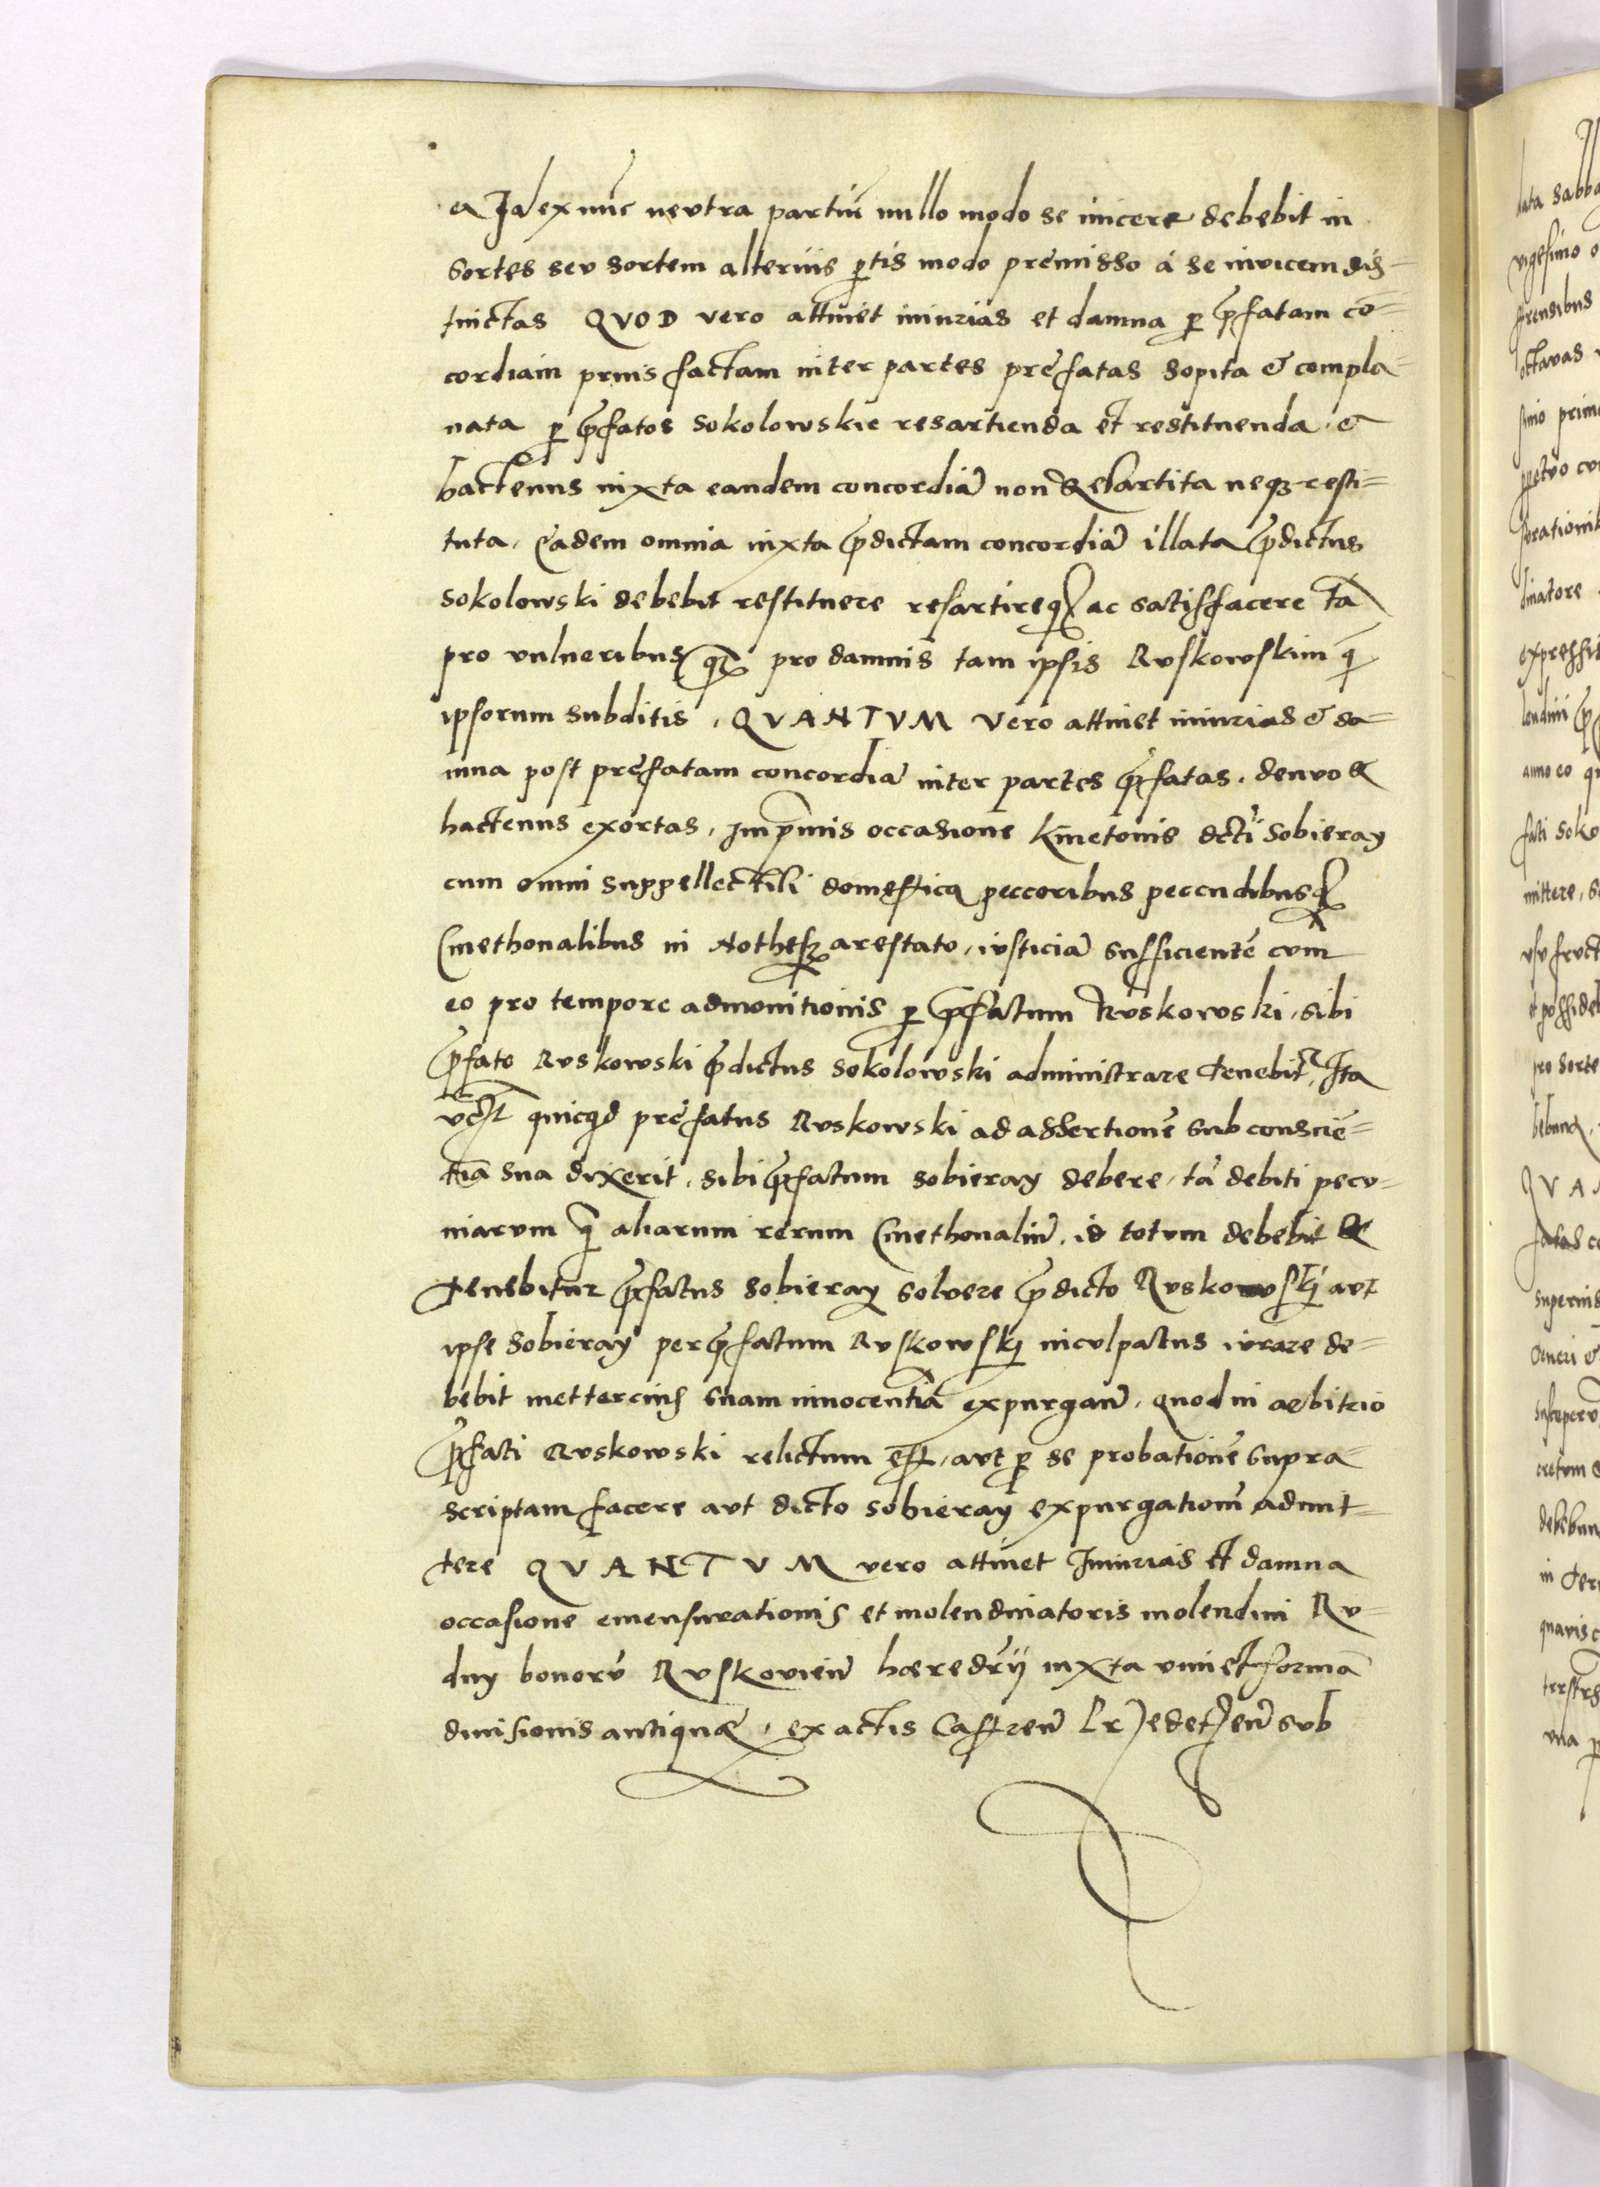 et Id ex nu͂c neutra partiu͂ nullo modo se inicere debebit in
sortes seu sortem alterius p̱tis modo premisso á se invicem dis=
tinctas QVOD vero attinet iniurias et damna ꝑ p̃fatam co͂=
cordiam prius factam inter partes prefatas sopita et compla=
nata ꝑ p̃fatos Sokolowskie resartienda et restituenda, et
hactenus iuxta eandem concordia͂ non Resartita neqꝫ resti=
tuta, eadem omnia iuxta p̃dictam concordia͂ illata p̃dictus
Sokolowski debebit restituere resartireqꝫ ac satisfacere ta͂
pro vulneribus q̃ pro damnis tam ipsis Ruskowskim q̃
ipsorum subditis, QVANTVM vero attinet iniurias et da=
mna post prefatam concordia͂ inter partes p̃fatas, denuo et
hactenus exortas, Imp̃mis occasione Kmetonis dcti Sobieray
cum omni suppellectili domestica peccoribus peccudibusqꝫ
Cmethonalibus in arestato, iusticia͂ sufficiente͂ cum
eo pro tempore admonitionis ꝑ p̃fatum Ruskowski, sibi
p̃fato Ruskowski p̃dictus Sokolowski administrare tenebit͂, Ita
quicqd prefatus Ruskowski ad assertione͂ sub conscie͂=
tia͂ sua dixerit, sibi p̃fatum Sobieray debere, ta͂ debiti pecu=
niarum q̃ aliarum rerum Cmethonaliu͂, id totum debebit et
tenebitur p̃fatus Sobieray solvere p̃dicto Ruskowskj aut
ipse Sobieray per p̃fatum Ruskowskj inculpatus iurare de=
bebit mettercius suam innocentia͂ expurgan͂, quod in arbitrio
p̃fati Ruskowski relictum est, aut ꝑ se probatione͂ supra=
scriptam facere aut dicto Sobieray expurgatione͂ admit=
tere QVANTVM vero attinet Iniurias et damna
occasione emensurationis et molendinatoris molendini Ru=
dny bonoru͂ Ruskovien͂ hæredrij iuxta vim et forma͂
divisionis antiquæ, ex actis Castren͂ sub